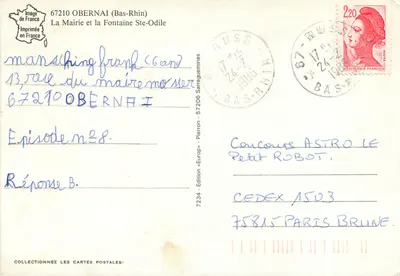 Image
de France
Imprimée
en France
67210 OBERNAI (Bas-Rhin)
La Mairie et la Fontaine Ste-Odile
67
17
24-
BAS-RHIN
2,20
13, rue du maire mosser
67210 OBERNAI
Episode n°8.
Réponse B.
7234 - Edition «Europ» - Pierron - 57206 Sarreguemines
Concours ASTRO LE
Petit ROBOT.
CEDEX 1503
75815 PARIS BRUNE.
COLLECTIONNEZ LES CARTES POSTALES!